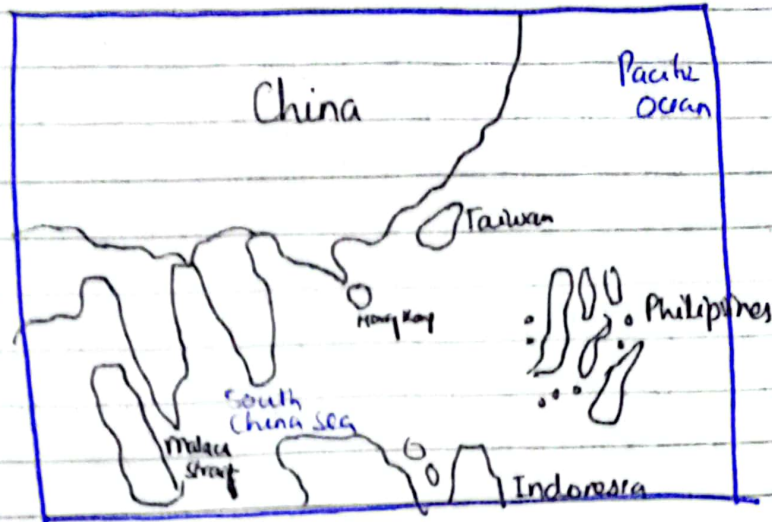 China
Pacific
Ocean
Taiwan
Hong Kong
Philippines
South
China Sea
Malacc
Strait
Indonesia